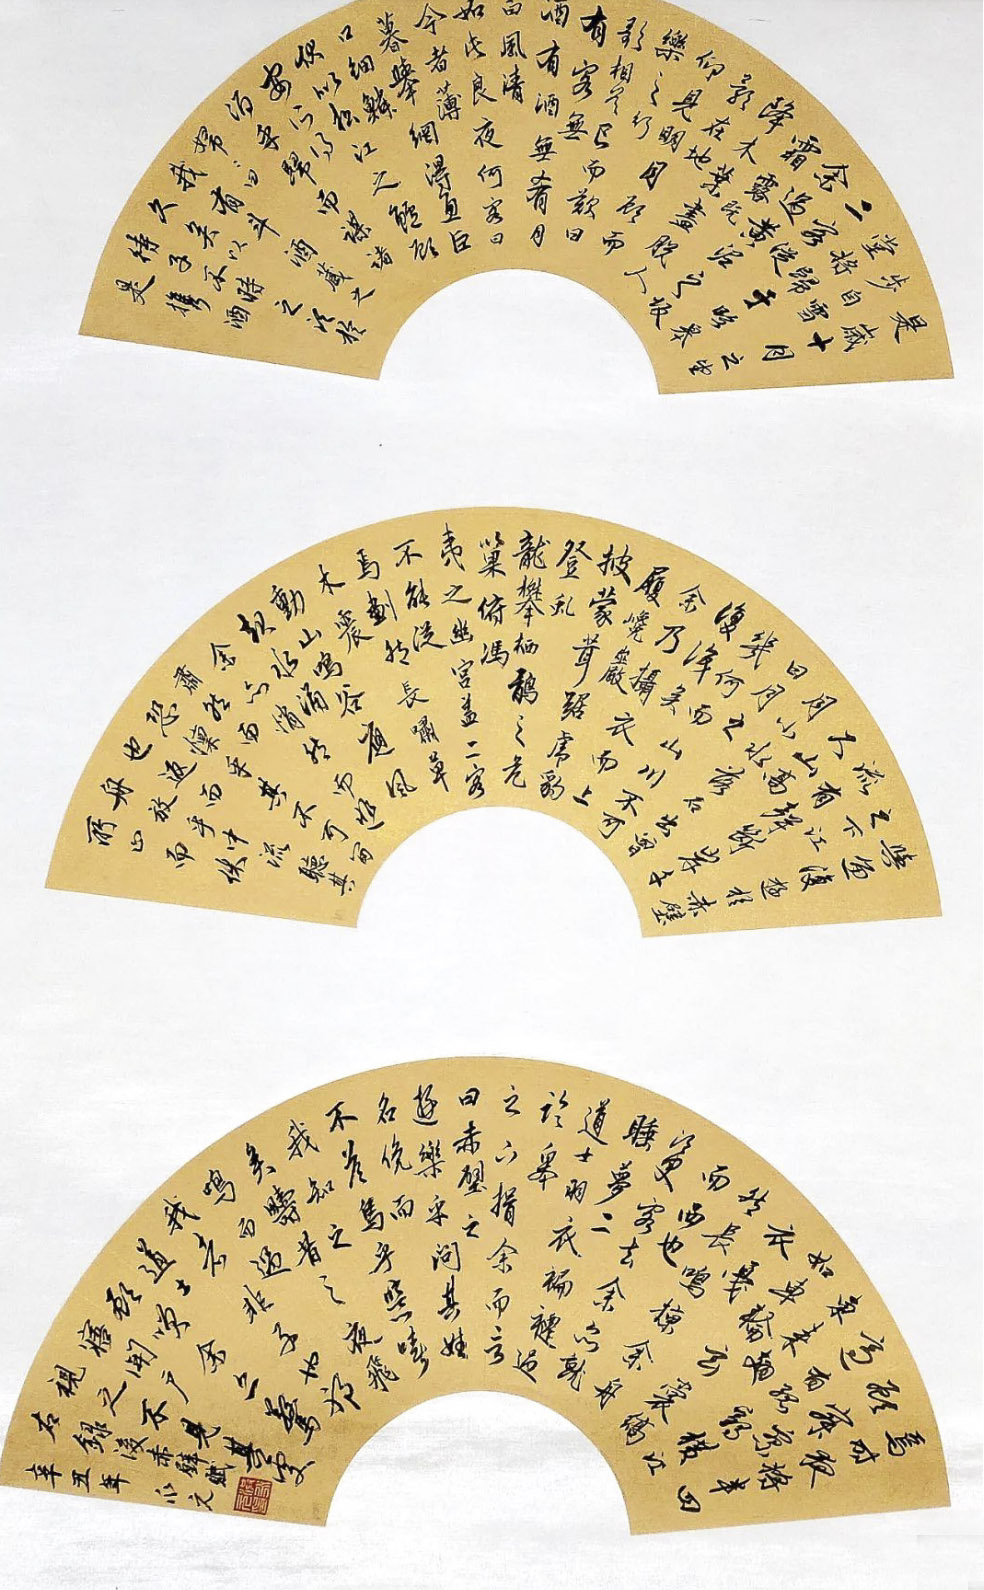 是歲十月之望
步自雪
堂將歸于臨皋
二客從
余過黃泥之坂
霜露既
降木葉盡脫人
影在地
仰見明月顧而
樂之行
歌相答已而歎曰
有客無
酒有酒無肴月
白風清
如此良夜何客曰
今者薄
暮舉網得魚巨
口細鱗
狀似松江之鱸顧
安所得
酒乎歸而謀諸
婦婦曰
我有斗酒藏之
久矣以
待子不時之須於
是攜酒
與魚復遊於赤壁
之下江
流有聲斷岸千
尺山高
月小水落石出曾
日月之
幾何而山川不可
復識矣
余乃攝衣而上
履巉巖
披蒙茸踞虎豹
登虬
龍攀栖鶻之危
巢俯馮
夷之幽宮蓋二客
不能從
焉劃然長嘯草
木震
動山鳴谷應風
起水涌
余亦悄然而悲
肅然而
恐凜乎其不可留
也返而
登舟放乎中流
聽其
所止而休
焉時夜將半四
顧寂寥
適有孤鶴橫江
東來翅
如車輪玄裳縞
衣戛
然長鳴掠余舟
而西也
須臾客去余亦就
睡夢二
道士羽衣蹁躚過
臨皋
之下揖余而言
曰赤壁之
遊樂乎問其姓
名俛而
不答嗚呼噫嘻
我知之
矣疇昔之夜飛
鳴而過
我者非子也耶
道士
顧笑余亦驚
寤開戶
視之不見其處
右錄後赤壁賦
辛丑年